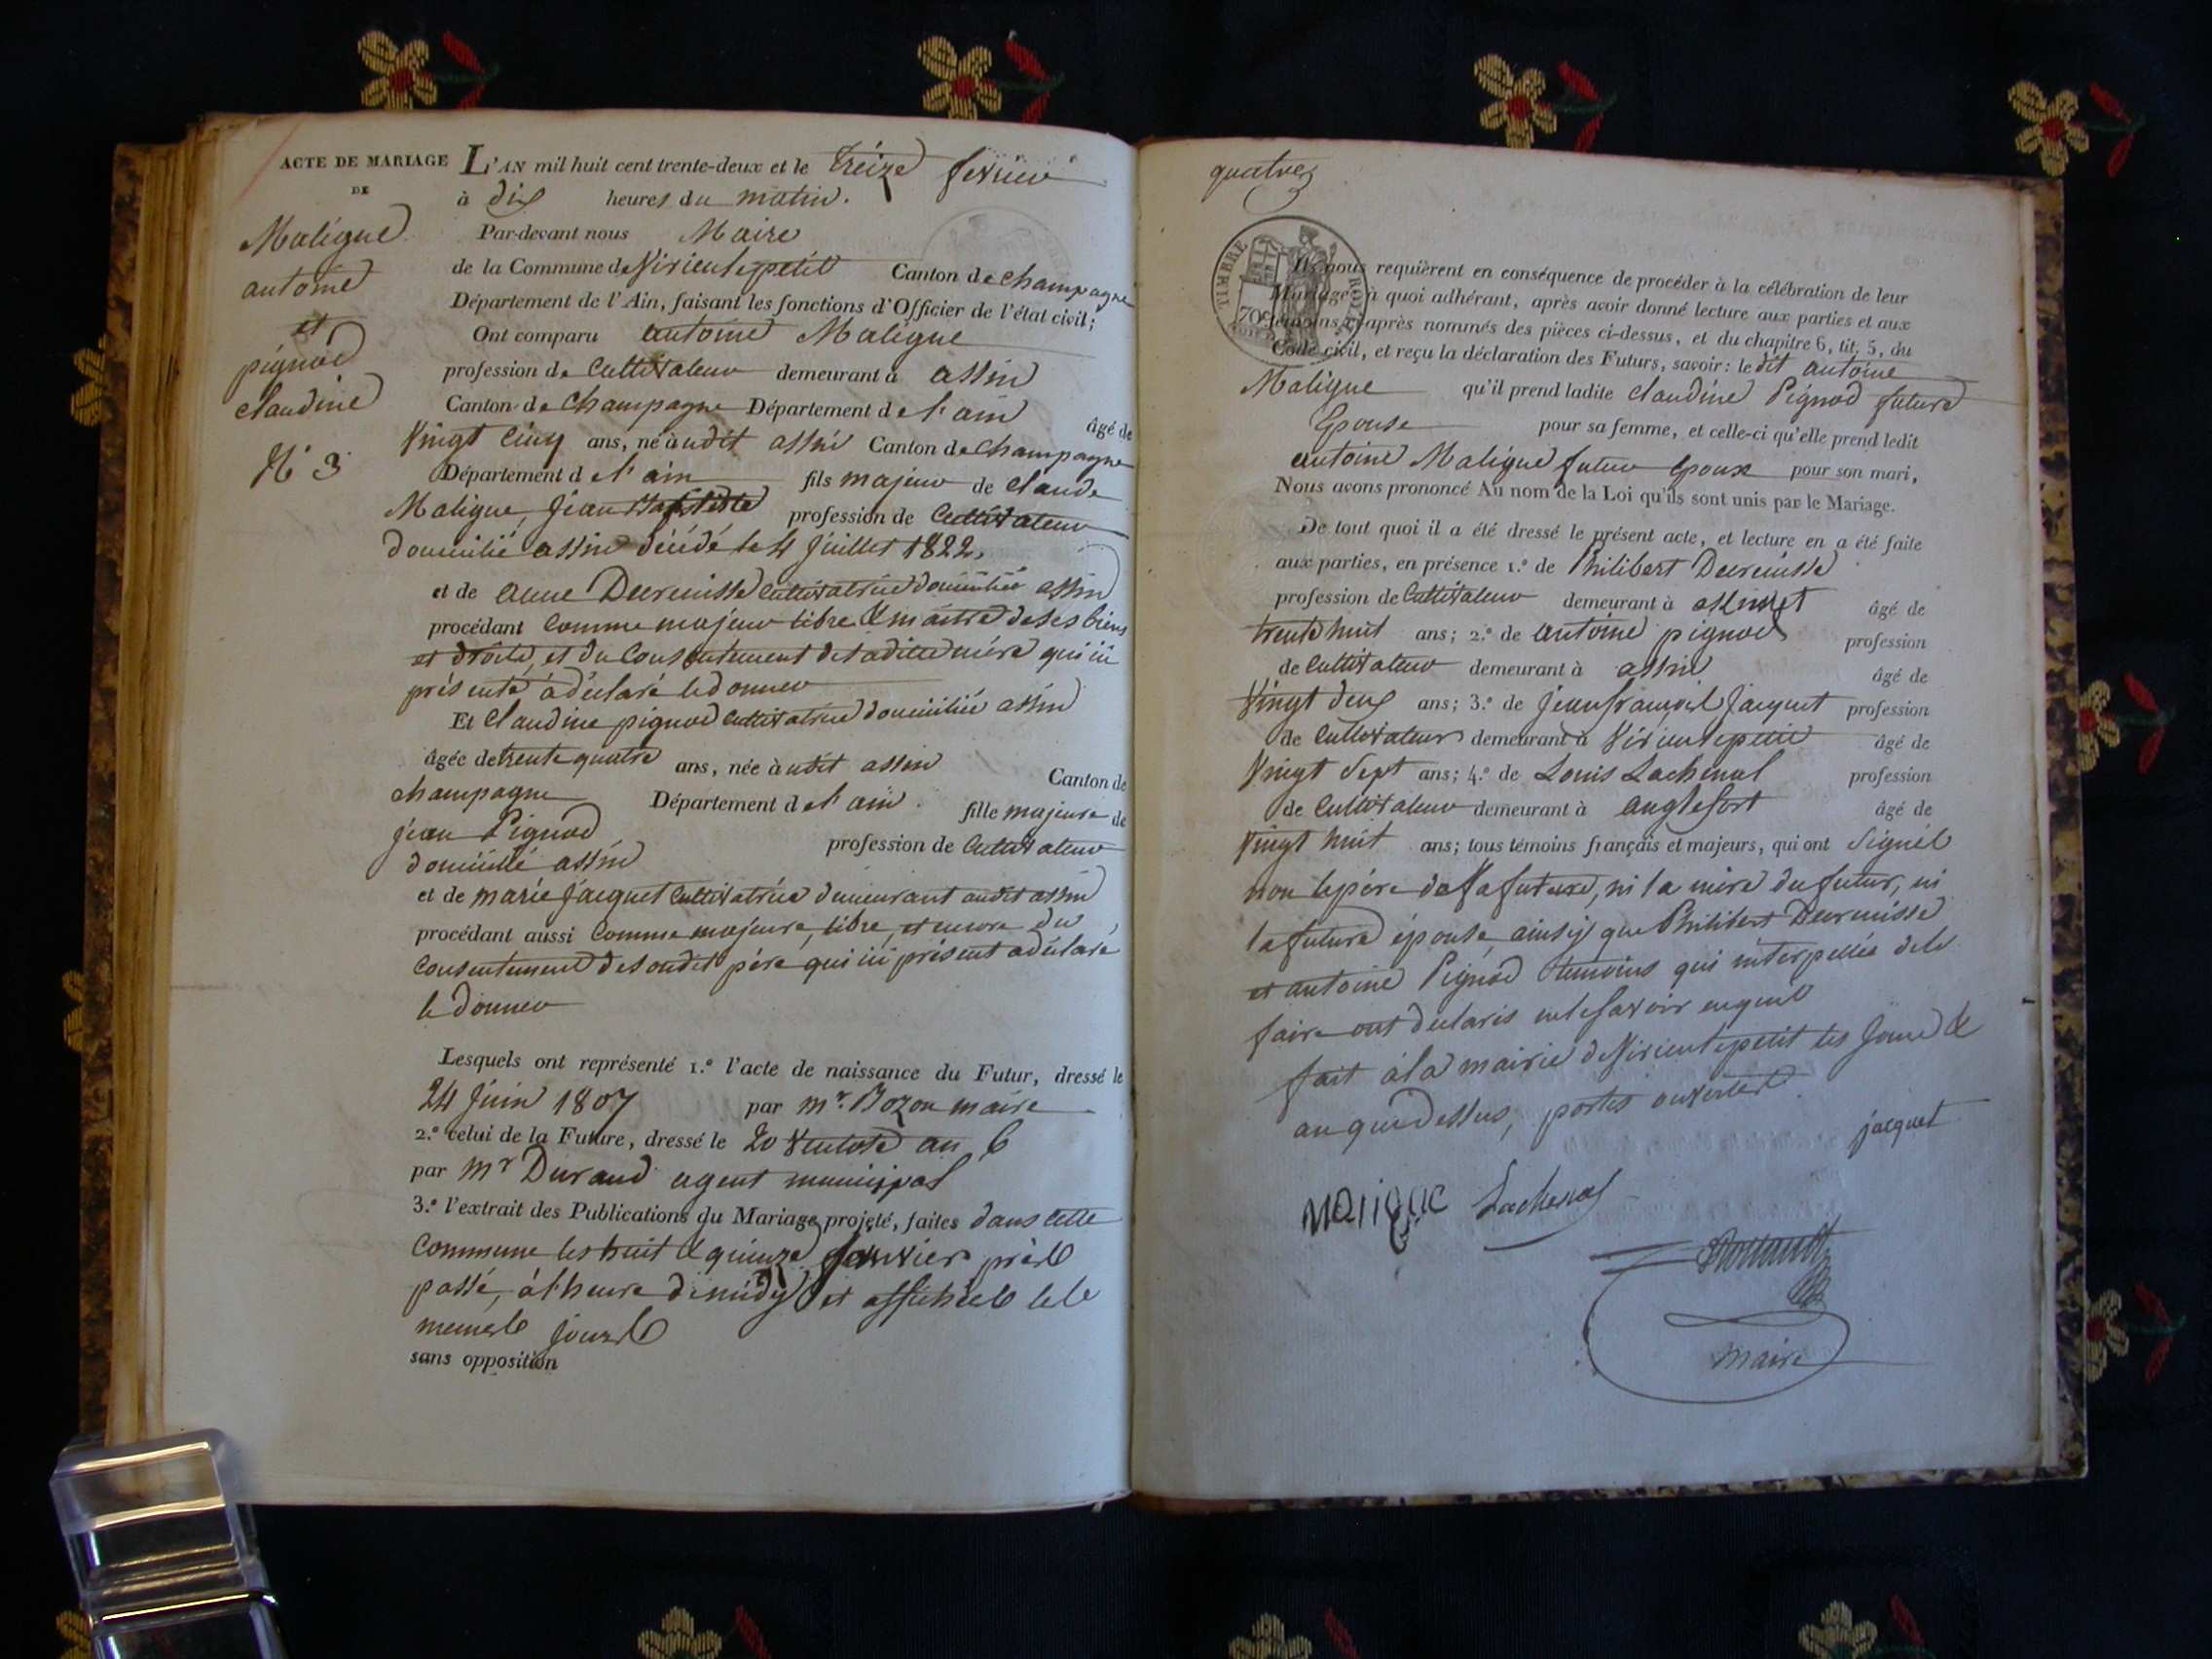 ACTE DE MARIAGE
DE
Maligue
antoine
et
pignod
claudine
N.° 3
L'AN mil huit cent trente-deux et le treize fevrier
à dix heures du matin.
Par-devant nous Maire
de la Commune de Virieulepetit Canton de champagne
Département de l'Ain, faisant les fonctions d'Officier de l'état civil;
Ont comparu antoine Maligue
profession de Cultivateur demeurant à assin
Canton de Champagne Département de l'ain âgé de
Vingt Cinq ans, né àudit assin Canton de Champagne
Département de l'ain fils majeur de Claude
Maligue, Jean Baptiste profession de Cultivateur
domicilié assin décédé le 4 Juillet 1822,
et de anne Decrenisse Cultivatrice domiciliée assin
procédant Comme majeur libre & maitre de ses biens
et droits, et du Consentement de saditte mère qui ici
présente à déclaré le donner
Et Claudine pignod Cultivatrice domiciliée assin
âgée de trente quatre ans, née àudit assin Canton de
champagne Département de l'ain. fille majeure de
jean Pignod profession de Cultivateur
domicilié assin
et de marie jacquet Cultivatrice demeurant audit assin
procédant aussi Comme majeure, libre, et encore du
Consentement de sondit père qui ici présent a déclaré
le donner
Lesquels ont représenté 1.° l'acte de naissance du Futur, dressé le
24 Juin 1807 par mr. Bozon maire
2.° celui de la Future, dressé le 20 Ventose an 6
par Mr Durand agent municipal
3.° l'extrait des Publications du Mariage projeté, faites dans cette
Commune les huit & quinze janvier près
passé, à l'heure de midy et affichées les
memes jours
sans opposition
quatre
TIMBRE ROYAL
70c
Ils nous requièrent en conséquence de procéder à la célébration de leur
Mariage; à quoi adhérant, après avoir donné lecture aux parties et aux
témoins ci-après nommés des pièces ci-dessus, et du chapitre 6, tit. 5, du
Code civil, et reçu la déclaration des Futurs, savoir: le dit antoine
Maligue qu'il prend ladite Claudine Pignod future
Epouse pour sa femme, et celle-ci qu'elle prend ledit
antoine Maligue futur Epoux pour son mari,
Nous avons prononcé Au nom de la Loi qu'ils sont unis par le Mariage.
De tout quoi il a été dressé le présent acte, et lecture en a été faite
aux parties, en présence 1.° de Philibert Decrenisse
profession de Cultivateur demeurant à âgé de
trente huit ans; 2.° de antoine pignod profession
de Cultivateur demeurant à assin âgé de
Vingt deux ans; 3.° de jean françois jacquet profession
de Cultivateur demeurant à Virieulepetit âgé de
Vingt Sept ans; 4.° de Louis Lachenal profession
de Cultivateur demeurant à anglefort âgé de
Vingt huit ans; tous témoins français et majeurs, qui ont Signés
non le père de la future, ni la mère du futur, ni
la future épouse, ainsi que Philibert Decrenisse
et antoine Pignod temoins qui interpellés de le
faire ont declarés ne le savoir
fait à la mairie de Virieulepetit les jour &
an que dessus, portes ouvertes
jacquet
MaliGue Lachenal
maire